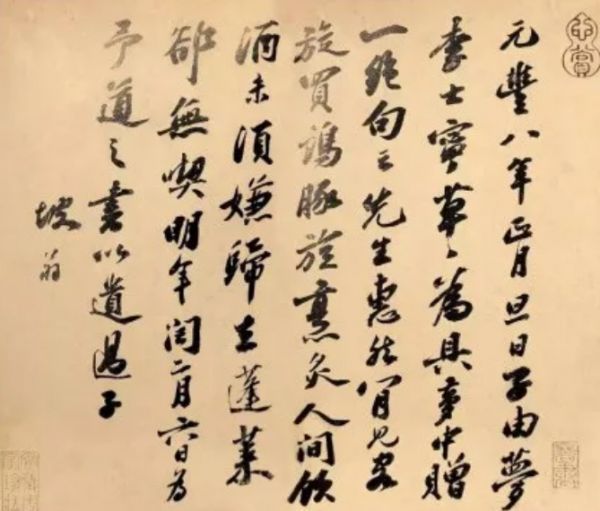 元豐八年正月旦日子由夢
李士寧草〻為具夢中贈
一絕句云先生惠然肯見客
旋買鷄豚旋烹炙人間飲
酒未須嫌歸去蓬萊
卻無喫明年閏二月六日為
予道之書以遺過子
坡翁
心賞